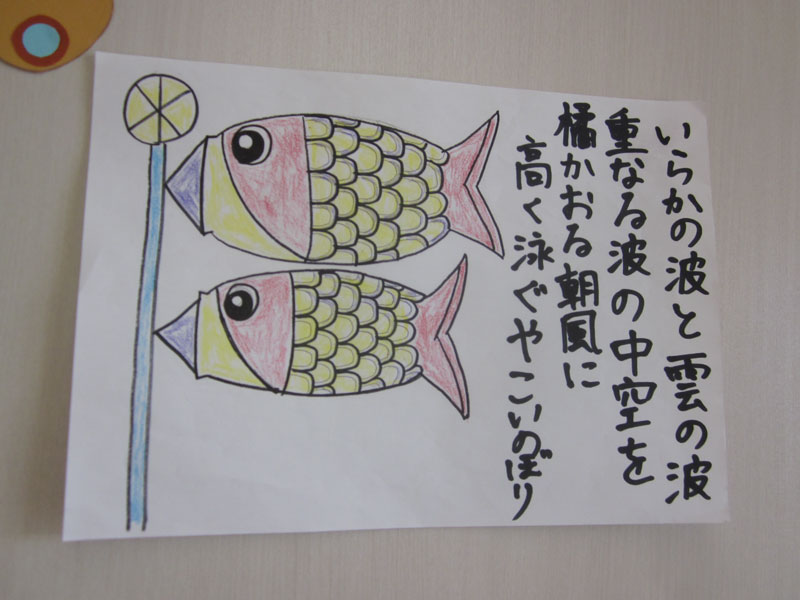 いらかの波と雲の波
重なる波の中空を
橘かおる朝風に
高く泳ぐやこいのぼり